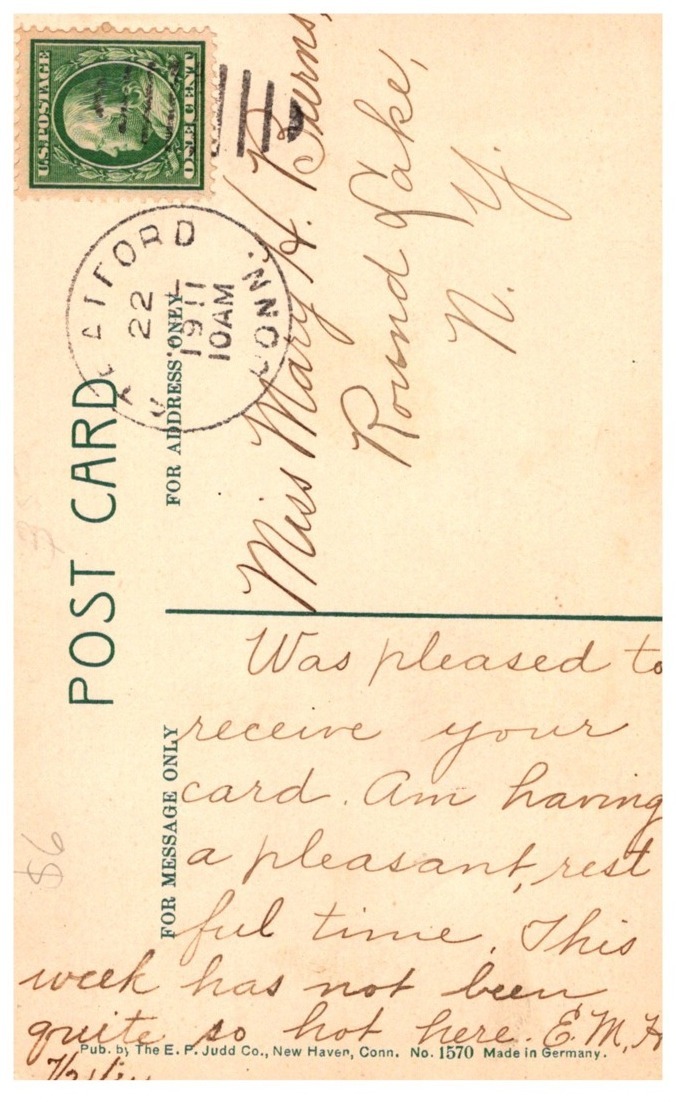 U.S. POSTAGE
ONE CENT
CONN.
22
1911
10AM
POST CARD
FOR ADDRESS ONLY
Miss Mary H. Burns,
Round Lake,
N. Y.
FOR MESSAGE ONLY
Was pleased to
receive your
card. Am having
a pleasant, rest
ful time. This
week has not been
quite so hot here. E. M. H
Pub. by The E. P. Judd Co., New Haven, Conn. No. 1570 Made in Germany.
$6